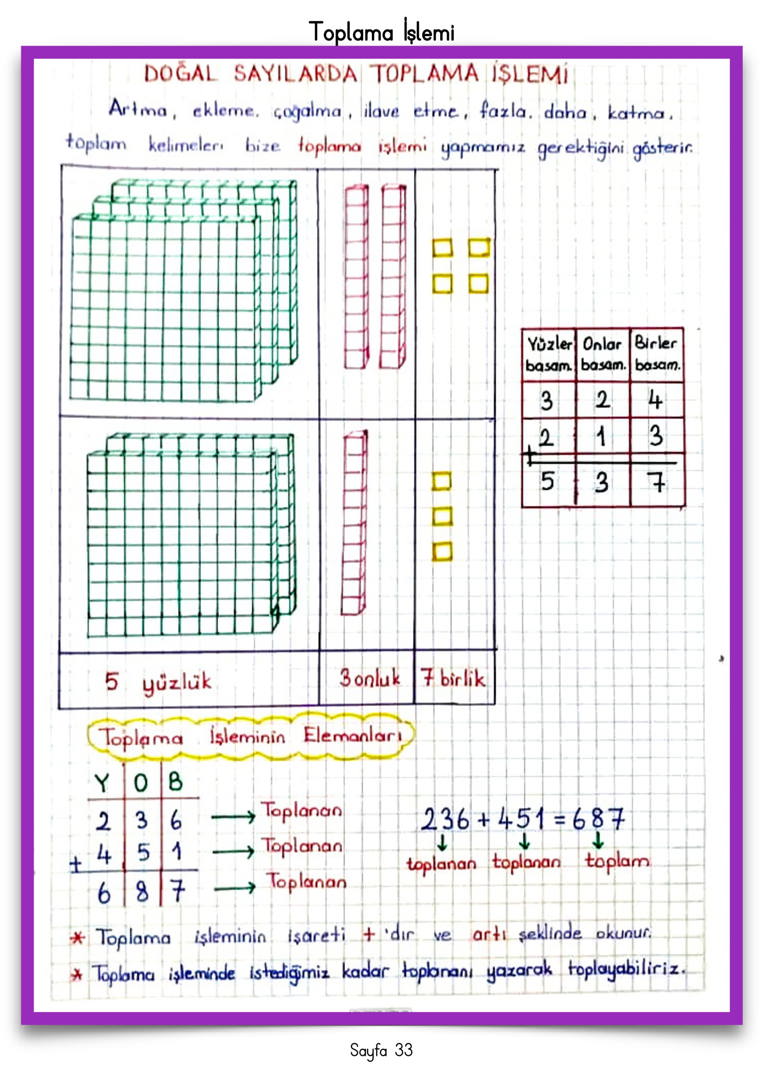 Toplama İşlemi
DOĞAL SAYILARDA TOPLAMA İŞLEMİ
Artma, ekleme, çoğalma, ilave etme, fazla, daha, katma,
toplam kelimeleri bize toplama işlemi yapmamız gerektiğini gösterir.
Yüzler basam. Onlar basam. Birler basam.
3 2 4
+ 2 1 3
5 3 7
5 yüzlük 3 onluk 7 birlik
Toplama İşleminin Elemanları
Y O B
2 3 6 → Toplanan
+ 4 5 1 → Toplanan
6 8 7 → Toplanan
236 + 451 = 687
↓ ↓ ↓
toplanan toplanan toplam
* Toplama işleminin işareti + 'dır ve artı şeklinde okunur.
* Toplama işleminde istediğimiz kadar toplananı yazarak toplayabiliriz.
Sayfa 33